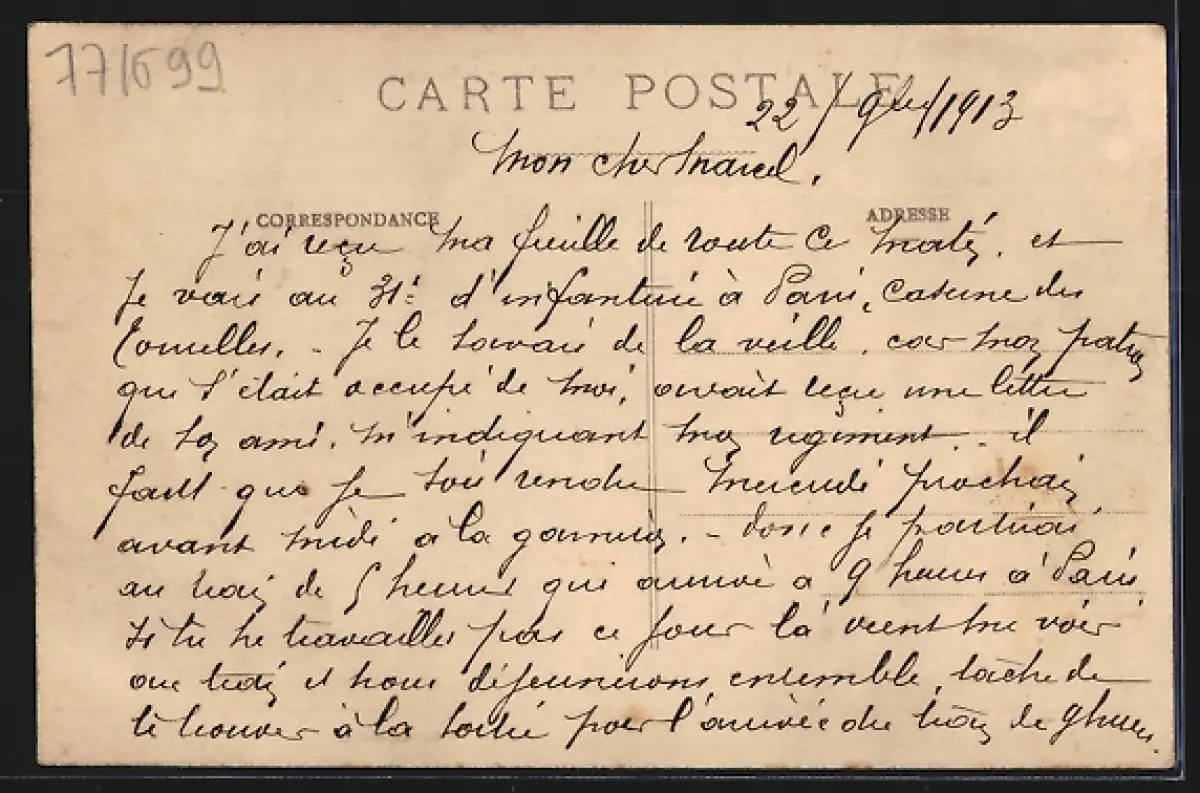 771699
CARTE POSTALE
22/9bre/1913
Mon cher Marcel.
CORRESPONDANCE
ADRESSE
J'ai reçu ma feuille de route ce matin. et
je vais au 31e d'infanterie à Paris, Caserne des
Tourelles. - Je le savais de la veille, car mon patron
que s'était occupé de moi, avait reçu une lettre
de son ami. m'indiquant mon régiment - il
faut que je sois rendu mercredi prochain
avant midi à la garnison. - donc je partirai
au train de 5 heures qui arrive à 9 heures à Paris
si tu ne travailles pas ce jour là vient me voir
au train et nous déjeunerons ensemble, tâche de
te trouver à la sortie pour l'arrivée du train de 9 heures.